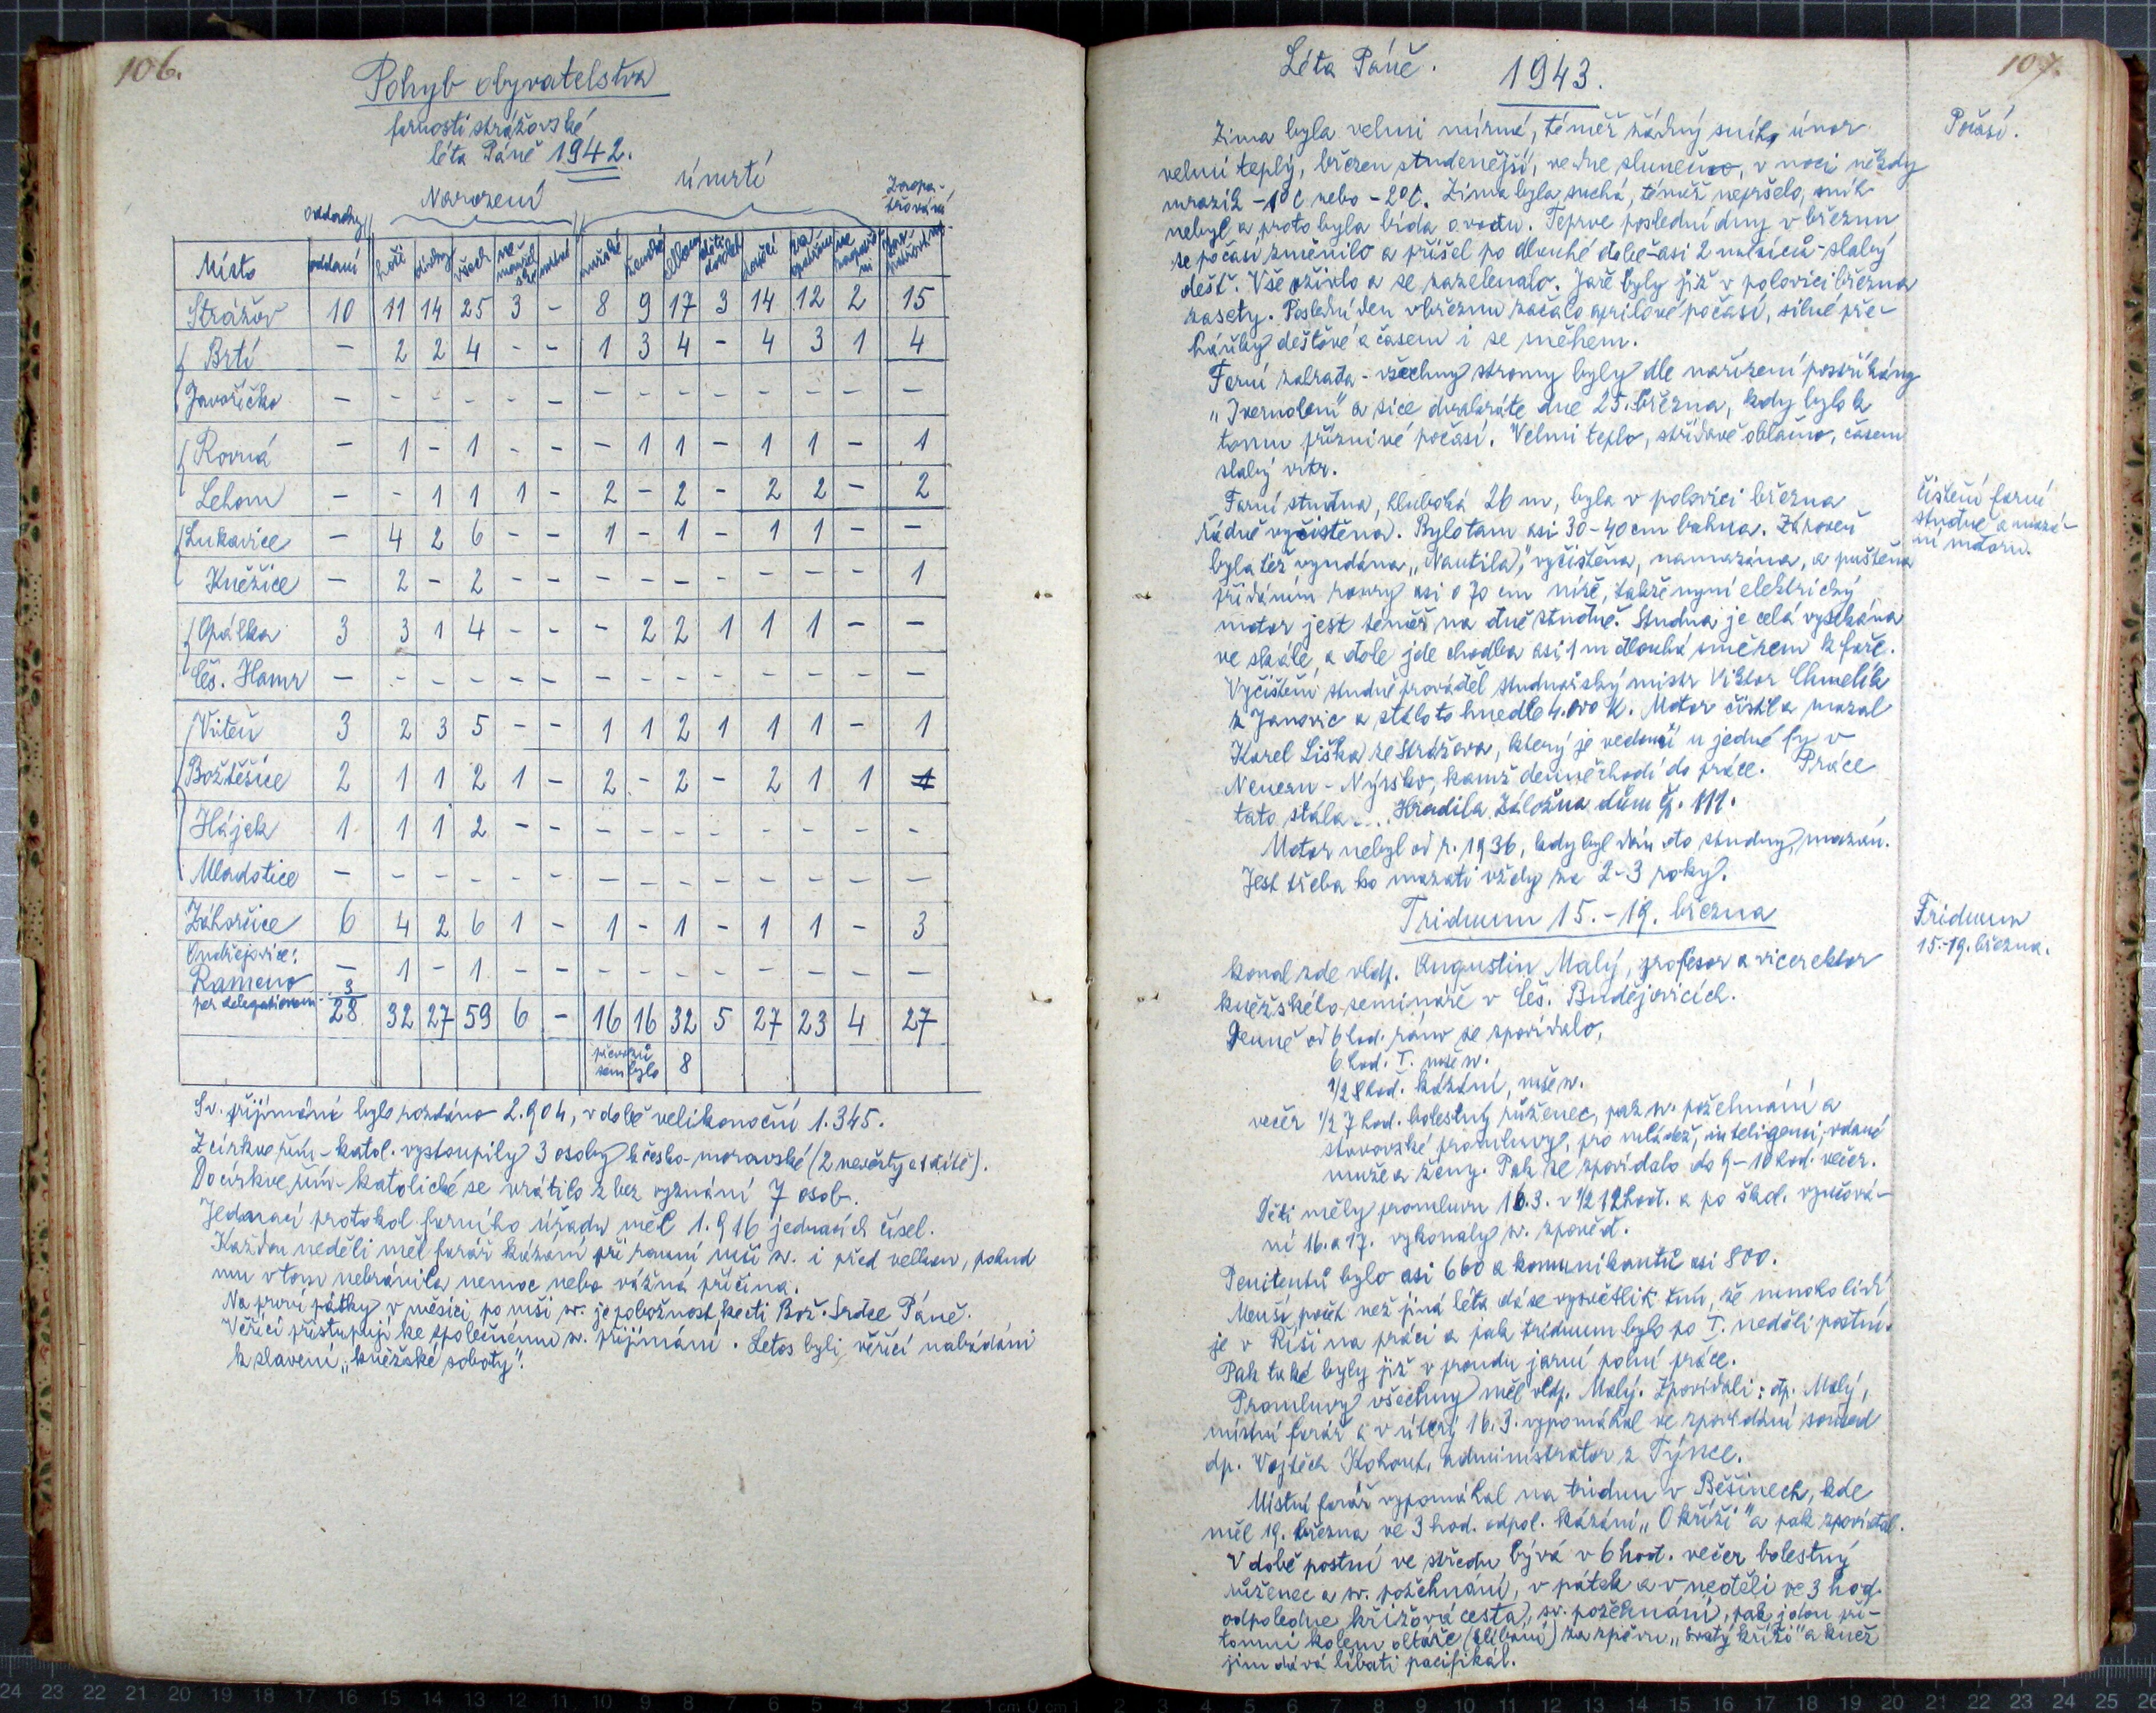 106.
Pohyb obyvatelstva
farnosti strážovské
léta Páně 1942.
oddavky Narození úmrtí Zaopatřování
Místo oddaní hoši dívky všech mužské ženské
Strážov 10 11 14 25 3 - 8 9 17 3 14 12 2 15
Brtí - 2 2 4 - - 1 3 4 - 4 3 1 4
Javoříčko - - - - - - - - - - - - - -
Rovná - 1 - 1 - - - 1 1 - 1 1 - 1
Lehom - - 1 1 1 - 2 - 2 - 2 2 - 2
Lukavice - 4 2 6 - - 1 - 1 - 1 1 - -
Kněžice - 2 - 2 - - - - - - - - - 1
Opálka 3 3 1 4 - - - 2 2 1 1 1 - -
Čes. Hamr - - - - - - - - - - - - - -
Viteň 3 2 3 5 - - 1 1 2 1 1 1 - 1
Božtěšice 2 1 1 2 1 - 2 - 2 - 2 1 1 1
Hájek 1 1 1 2 - - - - - - - - - -
Mladotice - - - - - - - - - - - - - -
Záhorčice 6 4 2 6 1 - 1 - 1 - 1 1 - 3
Ondřejovice:
Rameno - 1 - 1 - - - - - - - - - -
per delegationem 3
28 32 27 59 6 - 16 16 32 5 27 23 4 27
převozů
sem bylo 8
Sv. přijímání bylo rozdáno 2.904, v době velikonoční 1.345.
Z církve řím.-katol. vystoupily 3 osoby k česko-moravské (2 nevěsty a 1 dítě).
Do církve řím-katolické se vrátilo z bez vyznání 7 osob.
Jednací protokol farního úřadu měl 1.916 jednacích čísel.
Každou neděli měl farář kázání při ranní mši sv. i před velkou, pokud
mu v tom nebránila nemoc nebo vážná příčina.
Na první pátky v měsíci po mši sv. je pobožnost ke cti Bož. Srdce Páně.
Věřící přistupují ke společnému sv. přijímání. Letos byli věřící nabádáni
k slavení „kněžské soboty".
107.
Léta Páně. 1943.
Počasí.
Zima byla velmi mírná, téměř žádný sníh, únor
velmi teplý, březen studenější, ve dne slunečno, v noci někdy
mrazík -1°C nebo -2°C. Zima byla suchá, téměř nepršelo, sníh
nebyl a proto byla bída o vodu. Teprve poslední dny v březnu
se počasí změnilo a přišel po dlouhé době-asi 2 měsících-slabý
déšť. Vše oživlo a se zazelenalo. Jaře byly již v polovici března
zasety. Poslední den v březnu začalo aprilové počasí, silné pře-
háňky dešťové a časem i se sněhem.
Farní zahrada - všechny stromy byly dle nařízení postříkány
a sice dvakráte dne 25. března, kdy bylo k
tomu příznivé počasí. Velmi teplo, střídavě oblačno, časem
slabý vítr.
čištění farní
studně a mazá-
ní motoru.
Farní studna, hluboká 26 m, byla v polovici března
řádně vyčistěna. Bylo tam asi 30-40 cm bahna. Zároveň
byla též vyndána „Nautila", vyčištěna, namazána, a puštěna
přidáním roury asi o 70 cm níže, takže nyní elektrický
motor jest téměř na dně studně. Studna je celá vysekána
ve skále, a dole jde chodba asi 1 m dlouhá směrem k faře.
Vyčištění studně prováděl studnařský mistr Viktor Chmelík
z Janovic a stálo to hnedle 4.000 K. Motor čistil a mazal
Karel Liška ze Strážova, který je vedoucí u jedné fy v
Neuern - Nýrsko, kamž denně chodí do práce. Práce
tato stála ... Hradila Záložna dům č. 111.
Motor nebyl od r. 1936, kdy byl dán do studny, mazán.
Jest třeba ho mazati vždy za 2-3 roky.
Triduum 15.-19. března
Triduum
15.-19. března.
konal zde vldp. Augustin Malý, profesor a vicerektor
kněžského semináře v Čes. Budějovicích.
Denně od 6 hod. ráno se zpovídalo,
6 hod. I. mše sv.
1/2 8 hod. kázání, mše sv.
večer 1/2 7 hod. bolestný růženec, pak sv. požehnání a
stavovské promluvy, pro mládež, inteligenci, vdané
muže a ženy. Pak se zpovídalo do 9-10 hod. večer.
Děti měly promluvu 16.3. v 1/2 12 hod. a po škol. vyučová-
ní 16. a 17. vykonaly sv. zpověď.
Penitentů bylo asi 660 a komunikantů asi 800.
Menší počet než jiná léta dá se vysvětliti tím, že mnoho lidí
je v Říši na práci a pak triduum bylo po I. neděli postní.
Pak také byly již v proudu jarní polní práce.
Promluvy všechny měl vldp. Malý. Zpovídali: dp. Malý,
místní farář a v úterý 16.3. vypomáhal ve zpovídání soused
dp. Vojtěch Kohout, administrator z Týnce.
Místní farář vypomáhal na triduu v Běšinech, kde
měl 19. března ve 3 hod. odpol. kázání „O kříži" a pak zpovídal.
V době postní ve středu bývá v 6 hod. večer bolestný
růženec a sv. požehnání, v pátek a v neděli ve 3 hod.
odpoledne křížová cesta, sv. požehnání, pak jdou pří-
tomní kolem oltáře (líbání) za zpěvu „Svatý kříži" a kněz
jim dává líbati pacifikál.